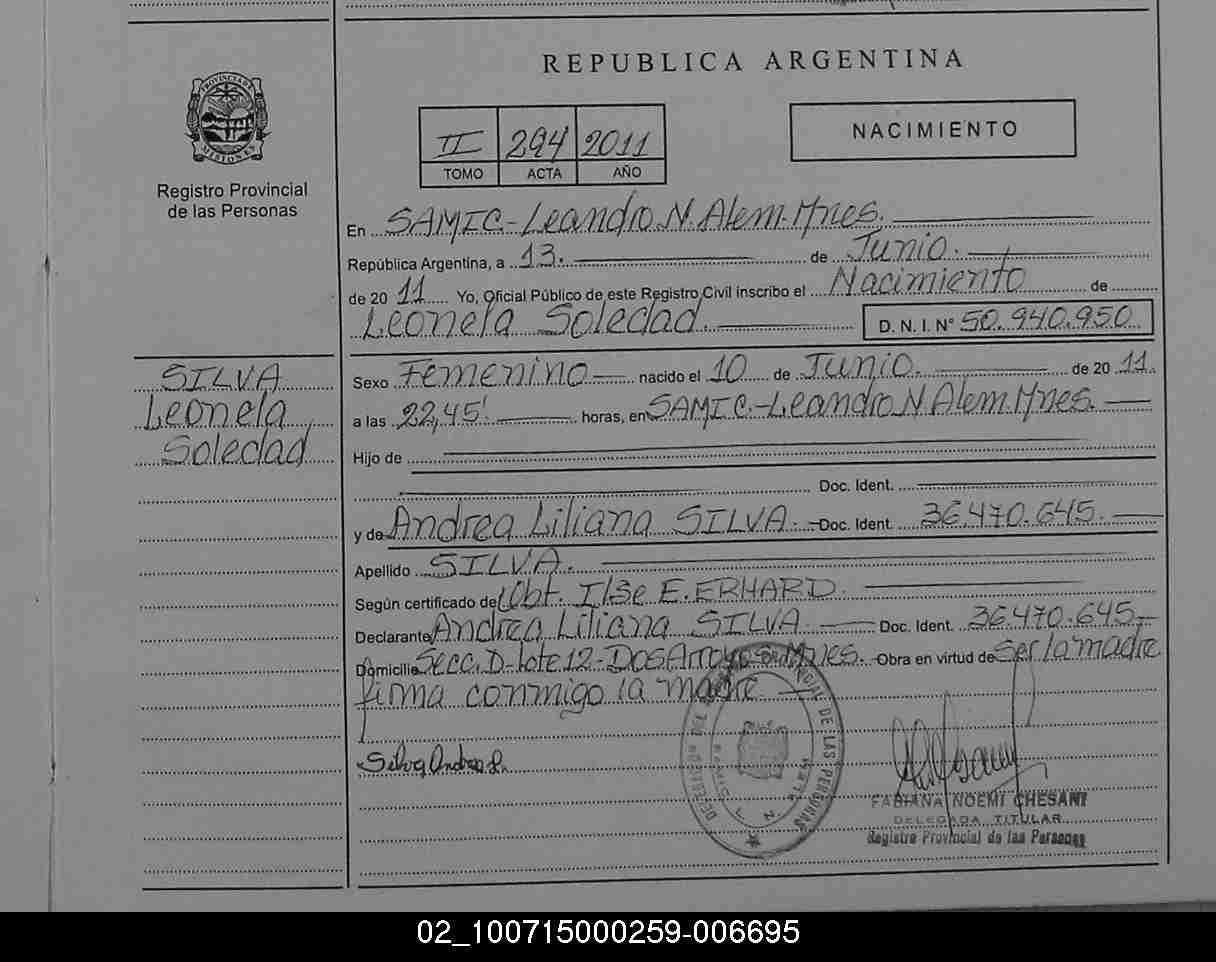 REPUBLICA ARGENTINA
PROVINCIA DE
MISIONES
Registro Provincial
de las Personas
II 294 2011
TOMO ACTA AÑO
NACIMIENTO
En SAMIC-Leandro N. Alem. Mnes.
República Argentina, a 13. de Junio.
de 20 11 Yo, Oficial Público de este Registro Civil inscribo el Nacimiento de
Leonela Soledad. D. N. I. N° 50.940.950
SILVA
Leonela
Soledad
Sexo Femenino nacido el 10 de Junio. de 20 11.
a las 22,45' horas, en SAMIC.-Leandro N Alem. Mnes.
Hijo de
Doc. Ident.
y de Andrea Liliana SILVA. Doc. Ident. 36.470.645.
Apellido SILVA.
Según certificado de Obt. Ilse E. ERHARD.
Declarante Andrea Liliana SILVA Doc. Ident. 36.470.645.
Domicilio Secc. D-Lote 12-Dos Arroyos. Mnes. Obra en virtud de ser la madre
firma conmigo la madre
Silva Andrea L.
PROVINCIAL DE LAS PERSONAS
FABIANA NOEMI CHESANI
DELEGADA TITULAR
Registro Provincial de las Personas
02_100715000259-006695